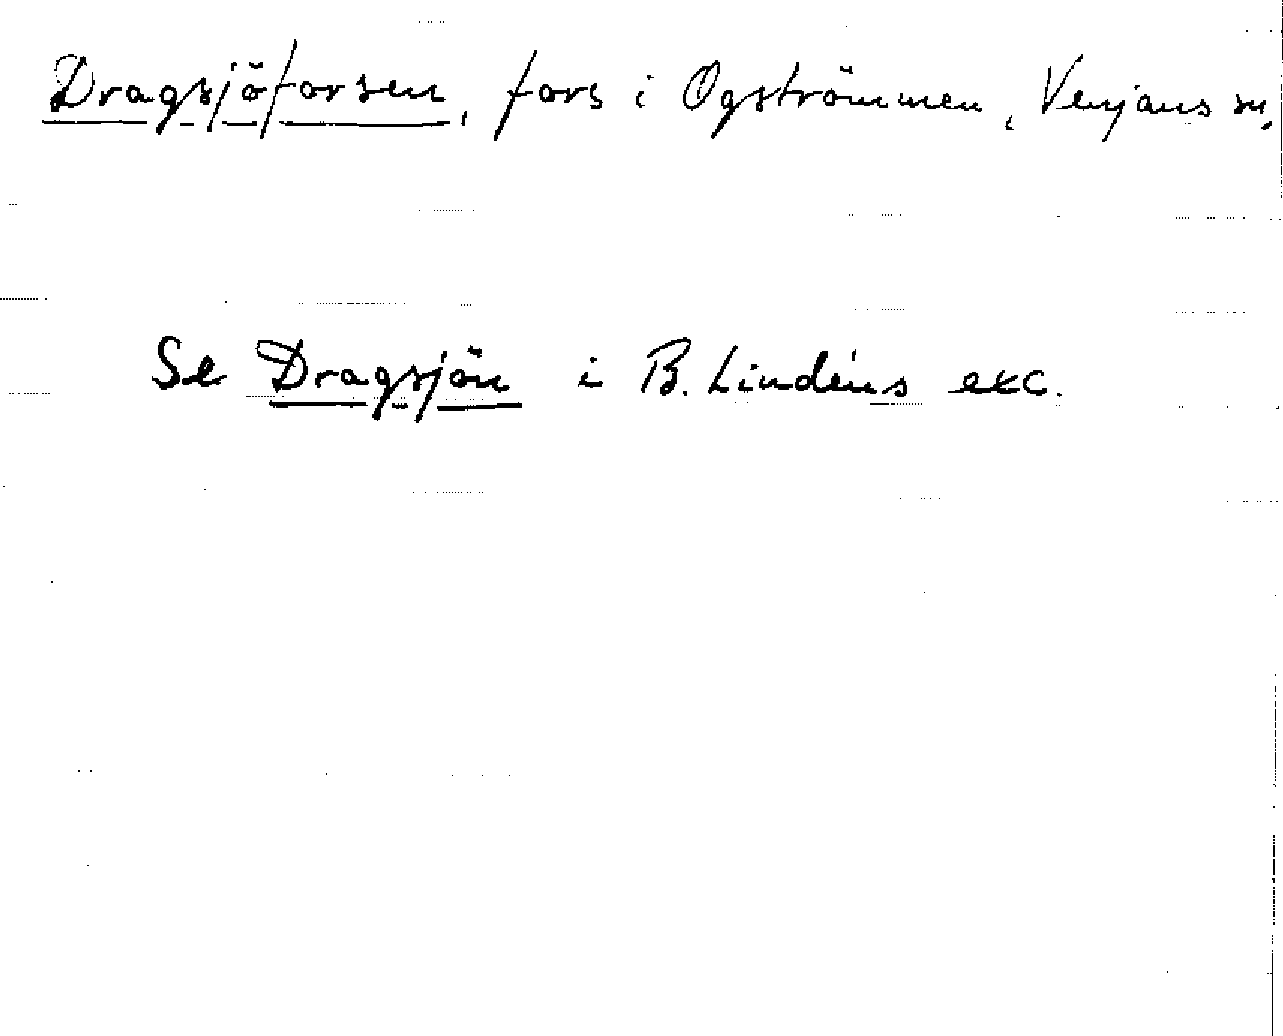 Dragsjöforsen, fors i Ogströmmen, Venjans sn,
Se Dragsjön i B. Lindéns exc.